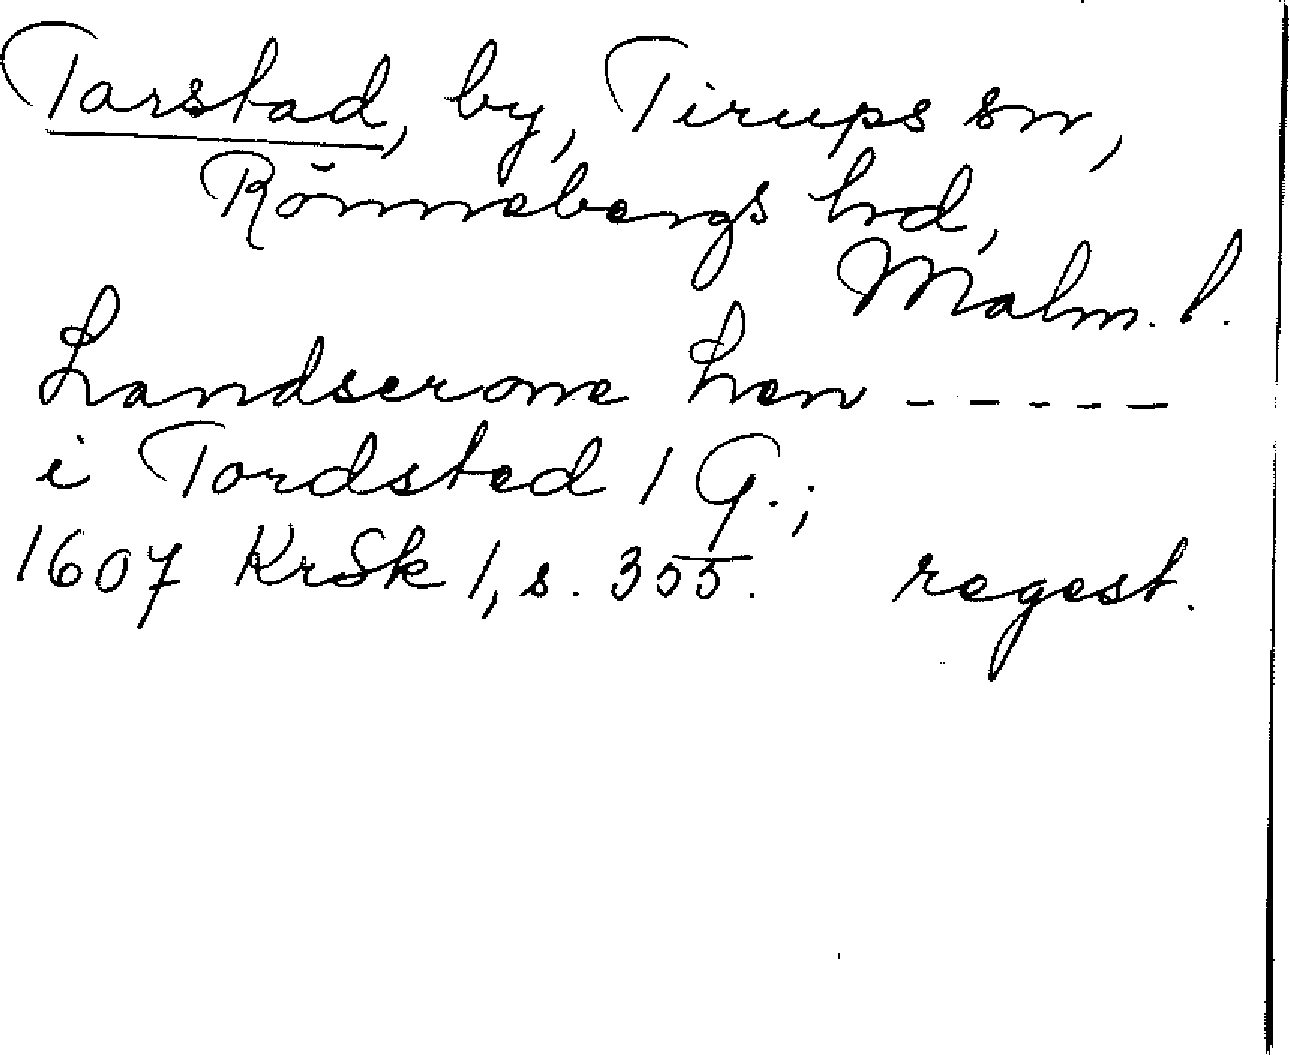 Tarstad, by, Tirups sn,
Rönnebergs hd,
Malm. l.
Landscrone Len - - - - -
i Tordsted 1 G.;
1607 KrSk 1, s. 355. regest.